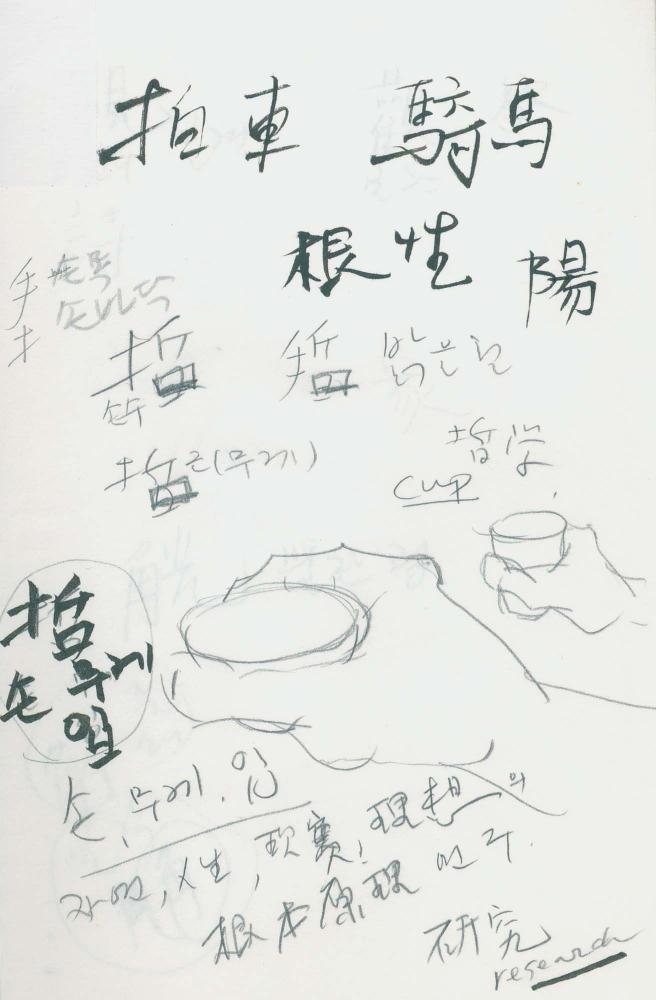 拍車 騎馬
根性 陽
手 손목
손바닥
哲 哲 밝은 철
손수
哲 근(무게)
哲学
cup
哲
손 무게
입
손, 무게, 입
자연, 人生, 現實, 理想의
根本原理 연구.
研究
research